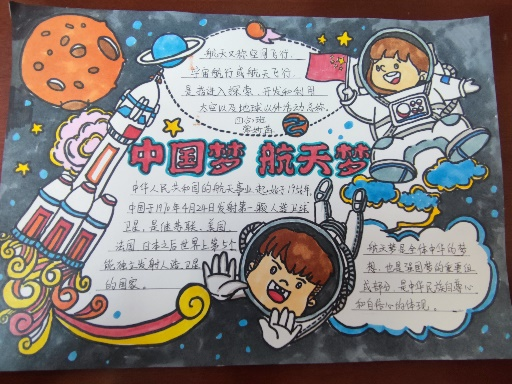 航天又称空间飞行,
宇宙航行或航天飞行
是指进入探索、开发和利用
太空以及地球以外活动总称.
四(5)班
中国梦 航天梦
中华人民共和国的航天事业起始于1956年.
中国于1970年4月24日发射第一颗人造地球
卫星,是继苏联、美国、
法国、日本之后世界上第5个
能独立发射人造卫星
的国家。
航天梦是全体中华的梦
想,也是强国梦的重要组
成部分,是中华民族自尊心
和自信心的体现。